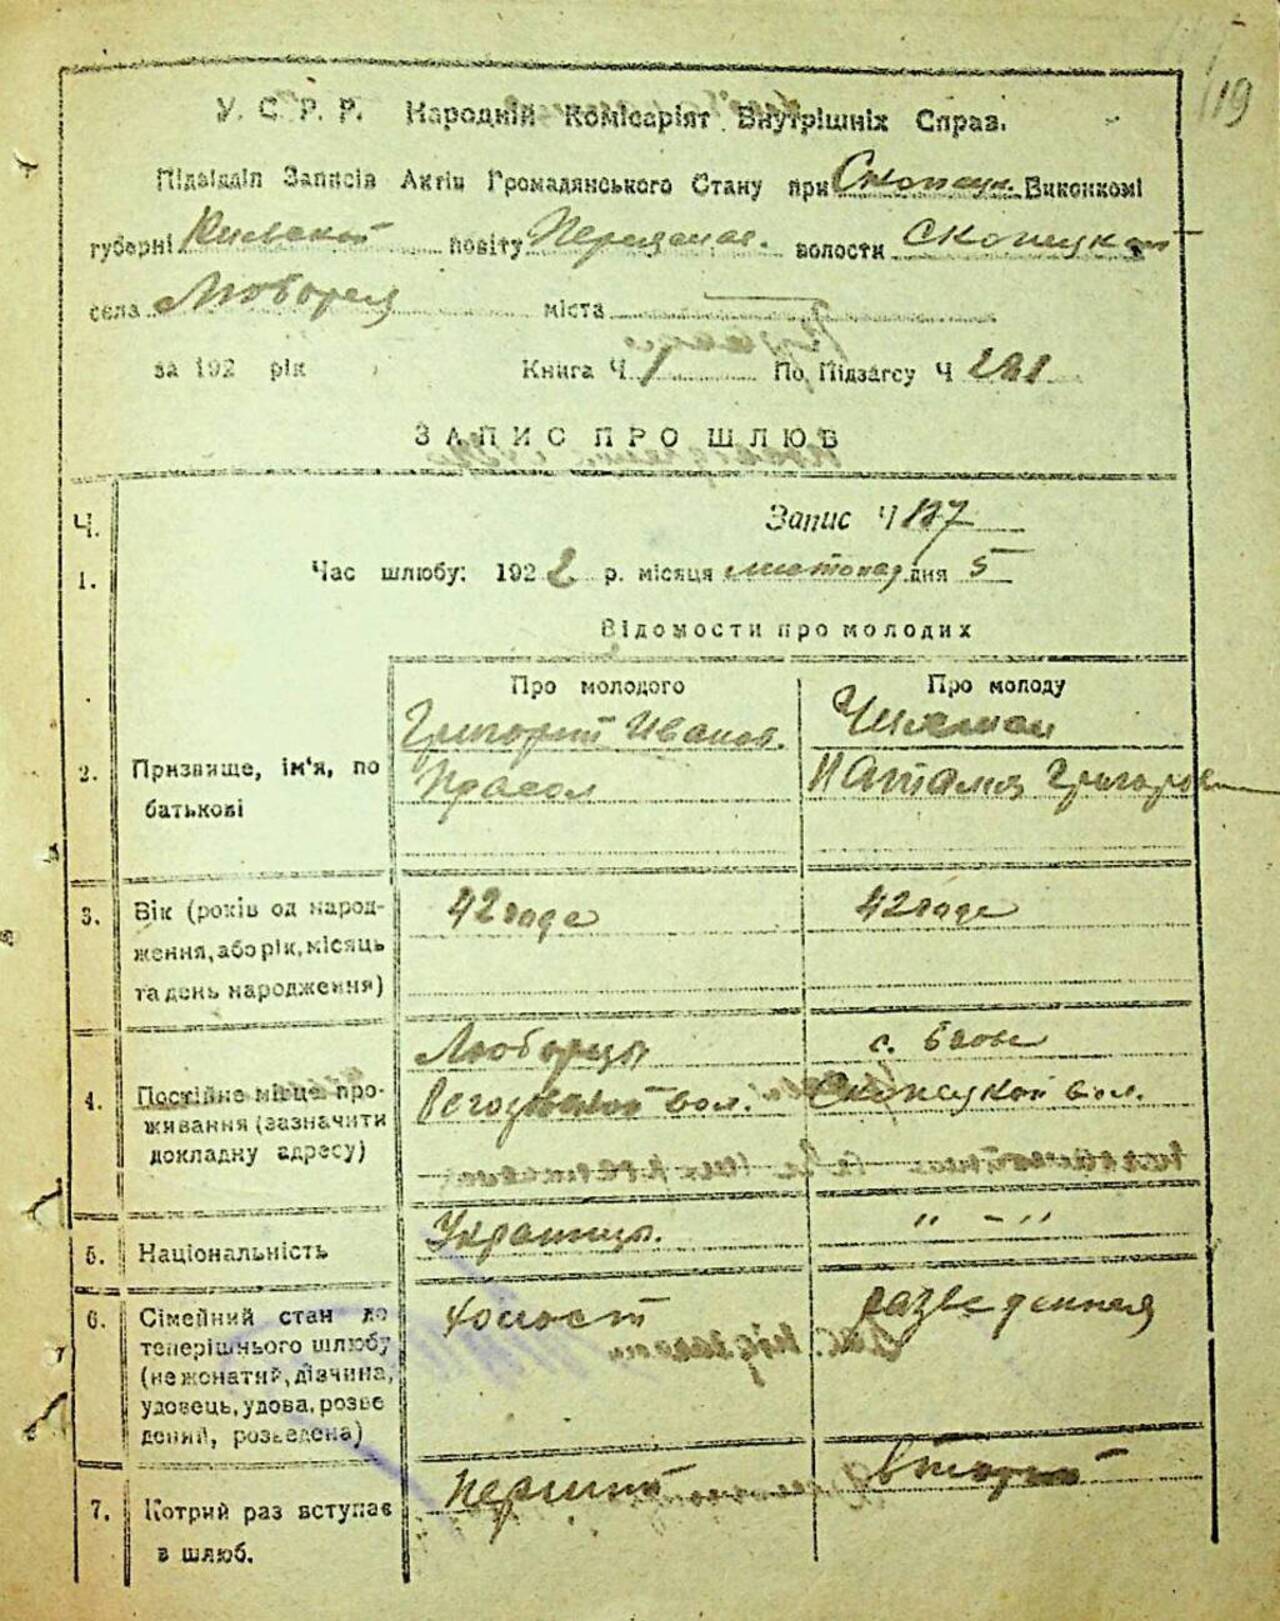 19
У. С. Р. Р. Народній Комісаріят Внутрішніх Справ.
Підвідділ Записів Актів Громадянського Стану при Скопецк. Виконкомі
губерні Киевской повіту Переяслав. волости Скопецкой
села Люборец міста
за 192 рік Книга Ч 1 По Підзагсу Ч 281
ЗАПИС ПРО ШЛЮБ
Ч. Запис Ч 127
1. Час шлюбу: 1922 р. місяця листопад дня 5
Відомости про молодих
Про молодого Про молоду
Григорий Иванов.
2. Призвище, ім'я, по Прасол Наталия Григоров
батькові
3. Вік (років од народ- 42 годе 42 годе
ження, або рік, місяць
та день народження)
Люборцы с.
4. Постійне місце про- вол. Скопецкой вол.
живання (зазначити
докладну адресу)
5. Національність Украинцы. " - "
6. Сімейний стан до холост разведенная
теперішнього шлюбу
(не жонатий, дівчина,
удовець, удова, розве
дений, розведена)
7. Котрий раз вступає перший второй
в шлюб.